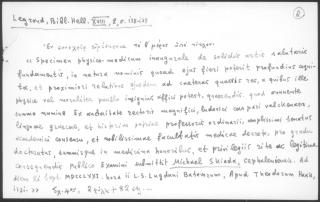 Legrand, Bibl. Hell. XVIII, 2, σ. 138-139
2
"Ἐν συνεχείᾳ εὑρίσκεται τὸ 8 μέρος
« Specimen physico medicum inaugurale de solidis artis salutaris
fundamentis, in natura hominis quoad ejus fieri poterit profundius
et proximiori relatione ejusdem ad caeteras quasvis res, a quibus ille
physice vel moraliter insignius affici potest, quaerendis, quod annuente
summo numine Ex auctoritate rectoris magnifici, Ludovici Caspari Valckenaer,
linguae graecae, et historiae patriae professoris ordinarii, amplissimi senatus
academici consensu, et nobilissimae facultatis medicae decreto, pro gradu
doctoratus, summisque in medicina honoribus, et privilegiis rite ac legitime
consequendis Publico Examini submittit Michael Skiada, Cephaleniensis. Ad
diem Sept. MDCCLXXI. hora L.S. Lugduni Batavorum, Apud Theodorum Haak,